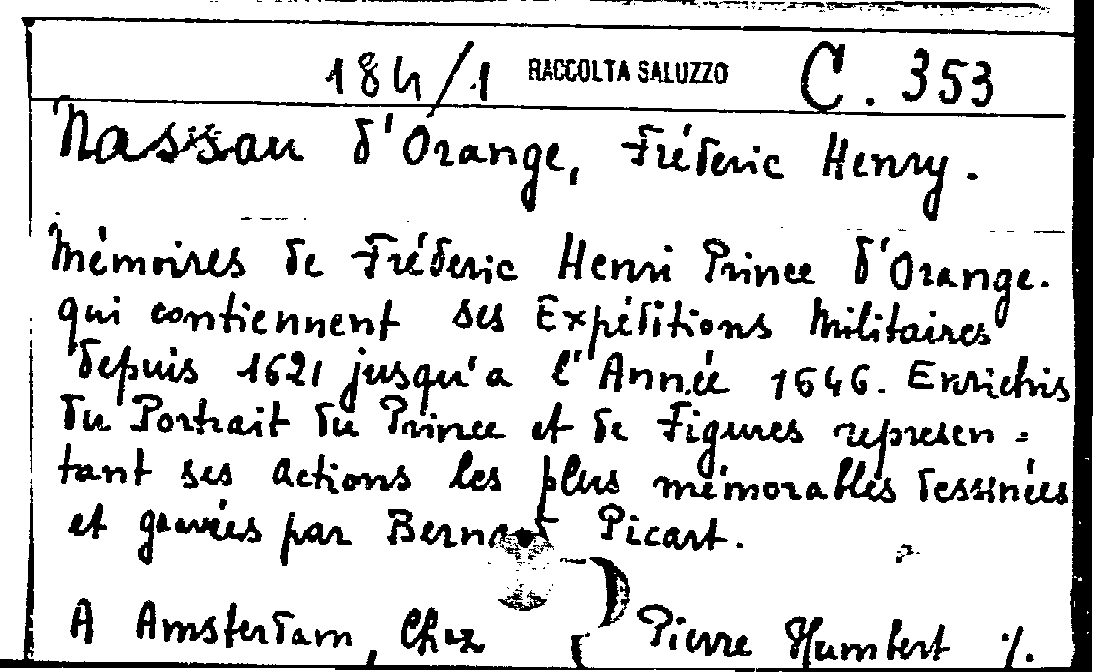 184/1 RACCOLTA SALUZZO C. 353
Nassau d'Orange, Fréderic Henry.
Mémoires de Fréderic Henri Prince d'Orange.
qui contiennent ses Expéditions Militaires
depuis 1621 jusqu'a l'Année 1646. Enrichis
du Portrait du Prince et de Figures represen=
tant ses actions les plus mémorables dessinées
et gravées par Bernart Picart.
A Amsterdam, Chez Pierre Humbert ./.